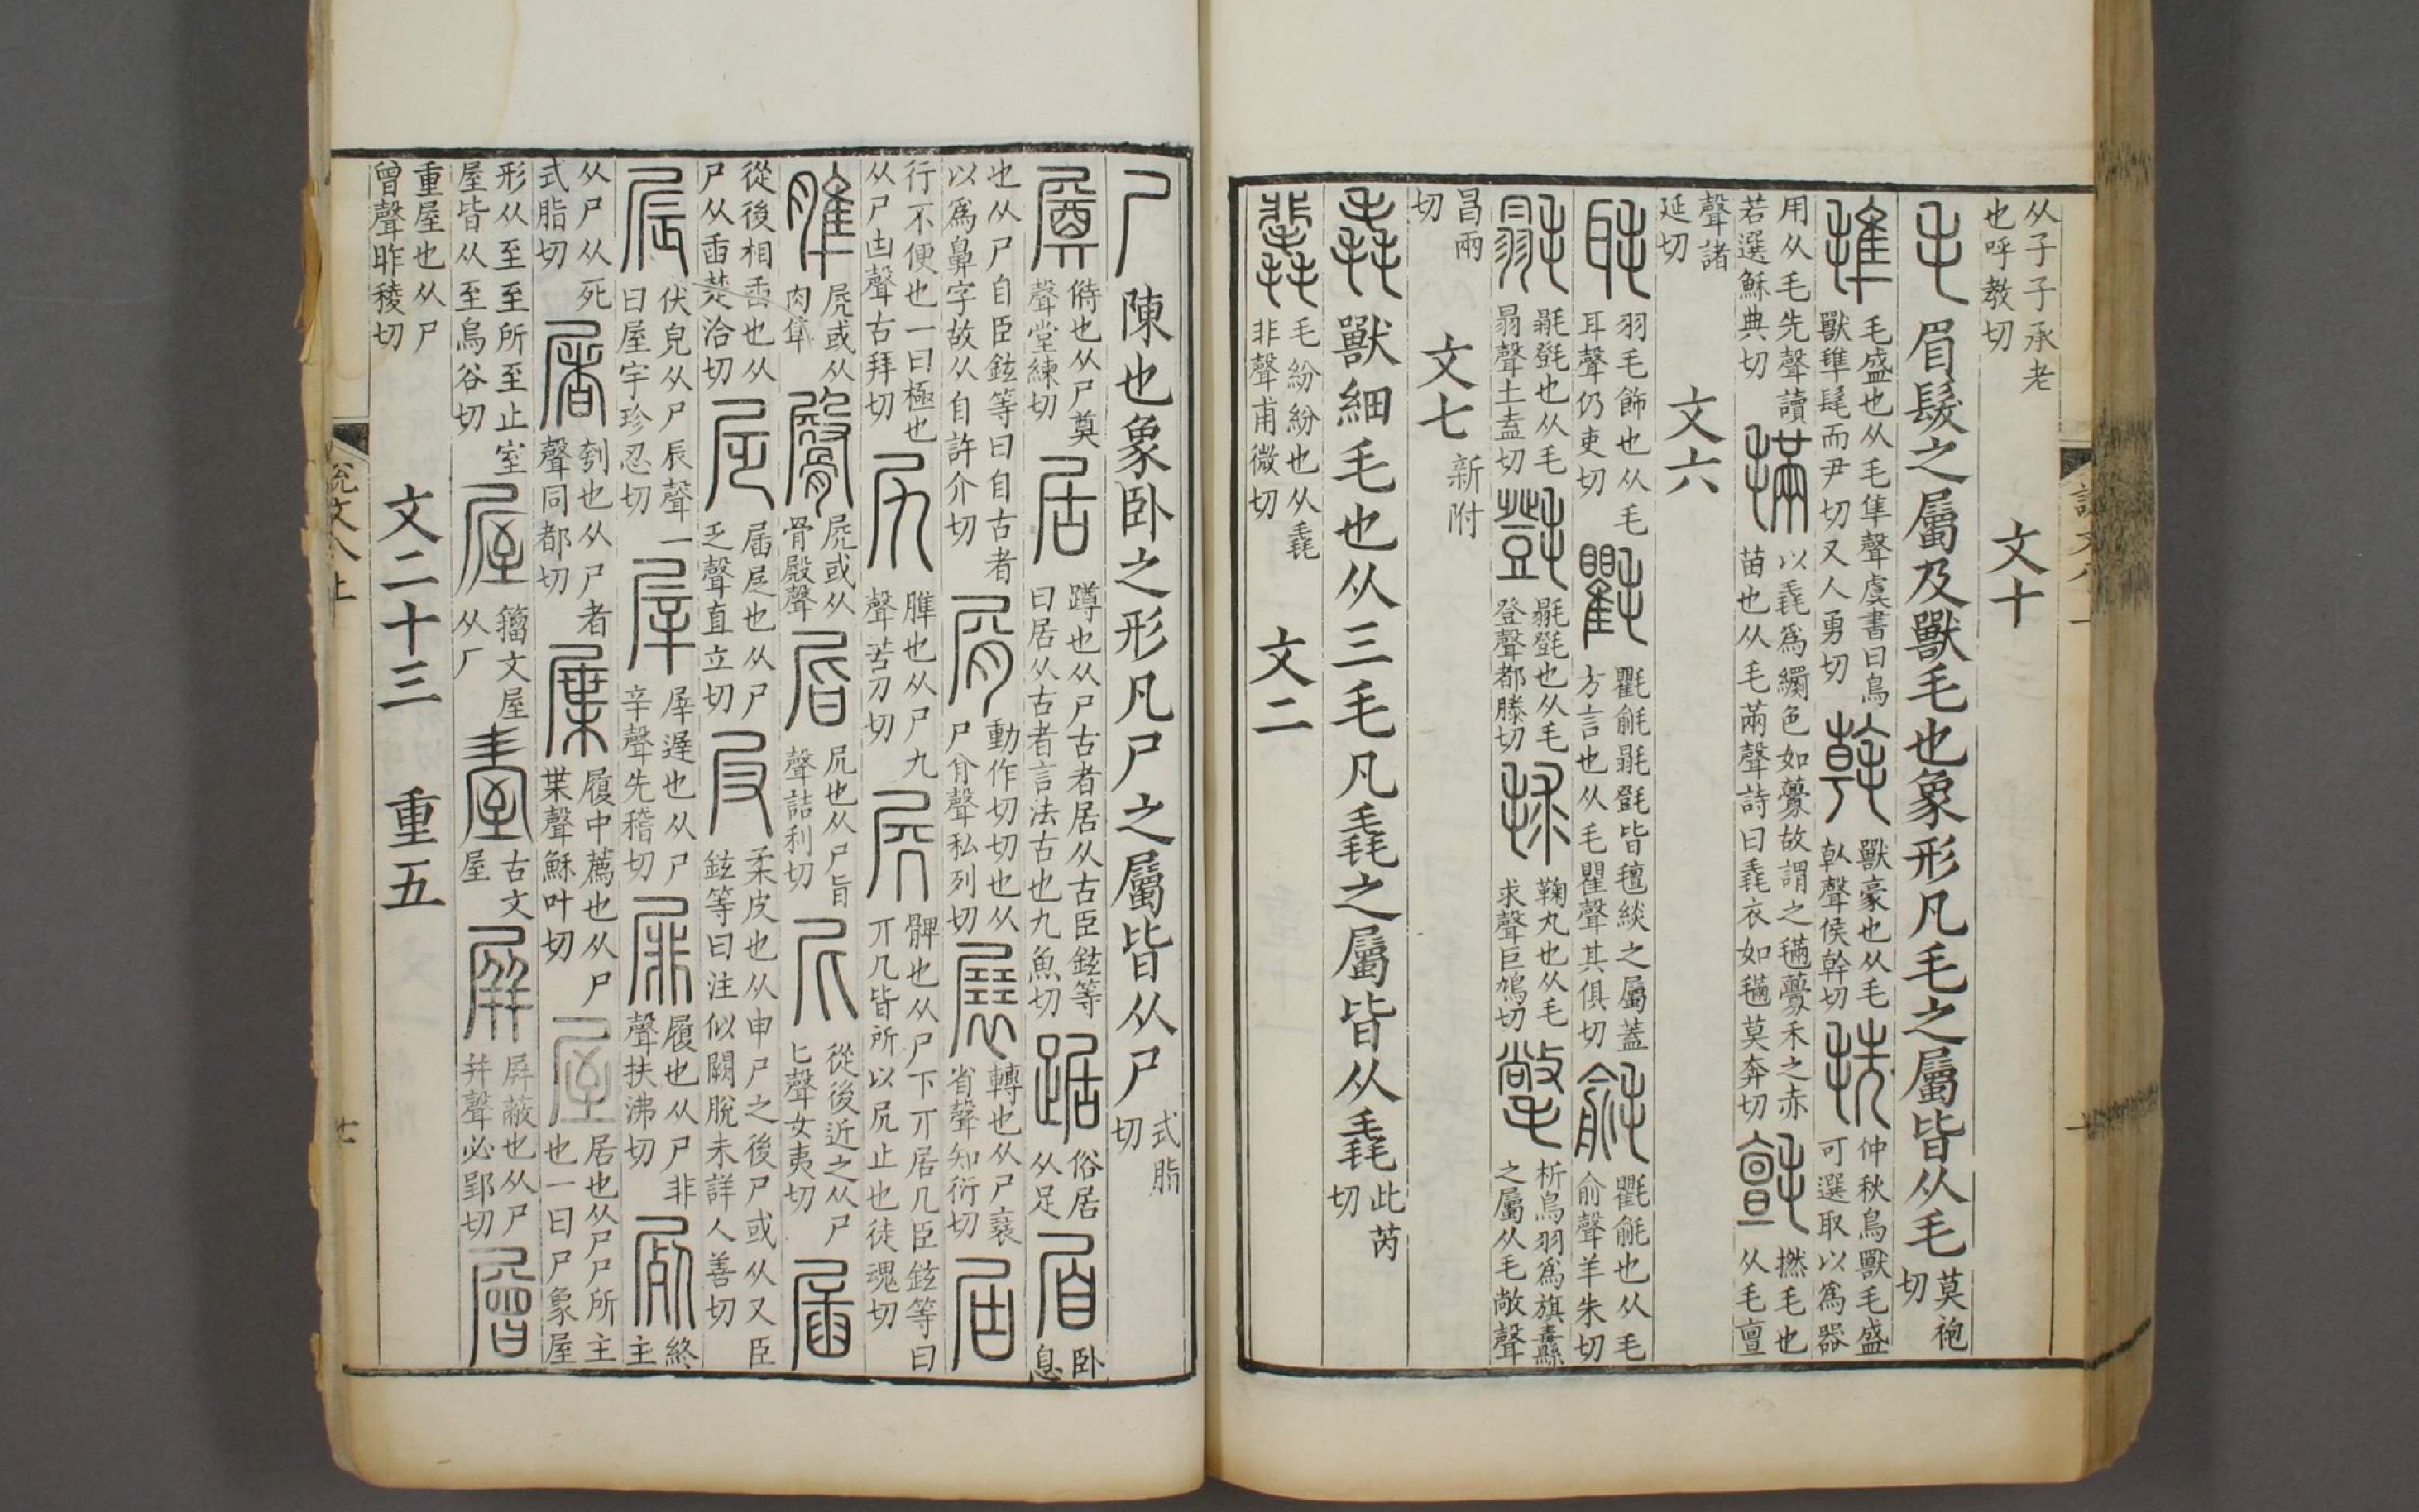 从子子承老也呼教切 文十
毛眉髮之屬及獸毛也象形凡毛之屬皆从毛莫袍切
𣮆毛盛也从毛隼聲虞書曰鳥獸𣮆髦而尹切又人勇切𣯶獸豪也从毛倝聲侯幹切毨仲秋鳥獸毛盛可選取以爲器
用从毛先聲讀若選穌典切𣯩以毳爲𦇧色如虋故謂之𣯩虋禾之赤苗也从毛㒼聲詩曰毳衣如𣯩莫奔切氈撚毛也从毛亶
聲諸延切 文六
毦羽毛飾也从毛耳聲仍吏切氍氍毹毾㲪皆氈緂之屬蓋方言也从毛瞿聲其俱切毹氍毹也从毛俞聲羊朱切
毾毾㲪也从毛㬱聲土盍切㲪毾㲪也从毛登聲都滕切毬鞠丸也从毛求聲巨鳩切氅析鳥羽爲旗纛之屬从毛敞聲
昌兩切 文七 新附
毳獸細毛也从三毛凡毳之屬皆从毳此芮切
𣰿毛紛紛也从毳非聲甫微切 文二
尸陳也象臥之形凡尸之屬皆从尸式脂切
𡳘偫也从尸奠聲堂練切居蹲也从尸古者居从古臣鉉等曰居从古者言法古也九魚切踞俗居从足𡱒臥息
也从尸自臣鉉等曰自古者以爲鼻字故从自許介切𡲗動作切切也从尸㕯聲私列切展轉也从尸㠭省聲知衍切屆
行不便也一曰極也从尸凷聲古拜切尻𦞠也从尸九聲苦刀切𡱂髀也从尸下丌居几臣鉉等曰丌几皆所以凥止也徒魂切
𦞠𡱂或从肉隼臋𡱂或从骨殿聲𡱈尻也从尸旨聲詰利切尼從後近之从尸匕聲女夷切𡲬
從後相臿也从尸从臿楚洽切𡰫𡲬𡰫也从尸乏聲直立切㞋柔皮也从申尸之後尸或从又臣鉉等曰注似闕脫未詳人善切
㞡伏皃从尸辰聲一曰屋宇珍忍切㞕㞕遟也从尸辛聲先稽切屝履也从尸非聲扶沸切屍終主
从尸从死式脂切屠刳也从尸者聲同都切屟履中薦也从尸枼聲穌叶切屋居也从尸尸所主也一曰尸象屋
形从至至所至止室屋皆从至烏谷切𢉋籒文屋从厂𡲇古文屋屛屛蔽也从尸并聲必郢切層
重屋也从尸曾聲昨稜切
文二十三 重五
說文八上
廿